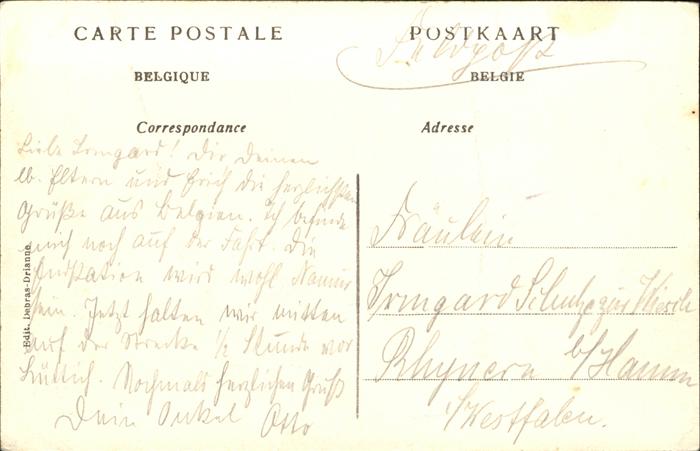 CARTE POSTALE
POSTKAART
Feldpost
BELGIQUE
BELGIE
Correspondance
Adresse
Liebe Irmgard! Dir Deinen
lb. Eltern und Erich die herzlichsten
Grüße aus Belgien. Ich befinde
mich noch auf der Fahrt. Die
Endstation wird wohl Namur
sein. Jetzt halten wir mitten
auf der Strecke 1/2 Stunde vor
Lüttich. Nochmals herzlichen Gruß
Dein Onkel Otto
Edit. Debras-Drianne.
Fräulein
Irmgard Schulze zur
Rhynern b/Hamm
i/Westfalen.